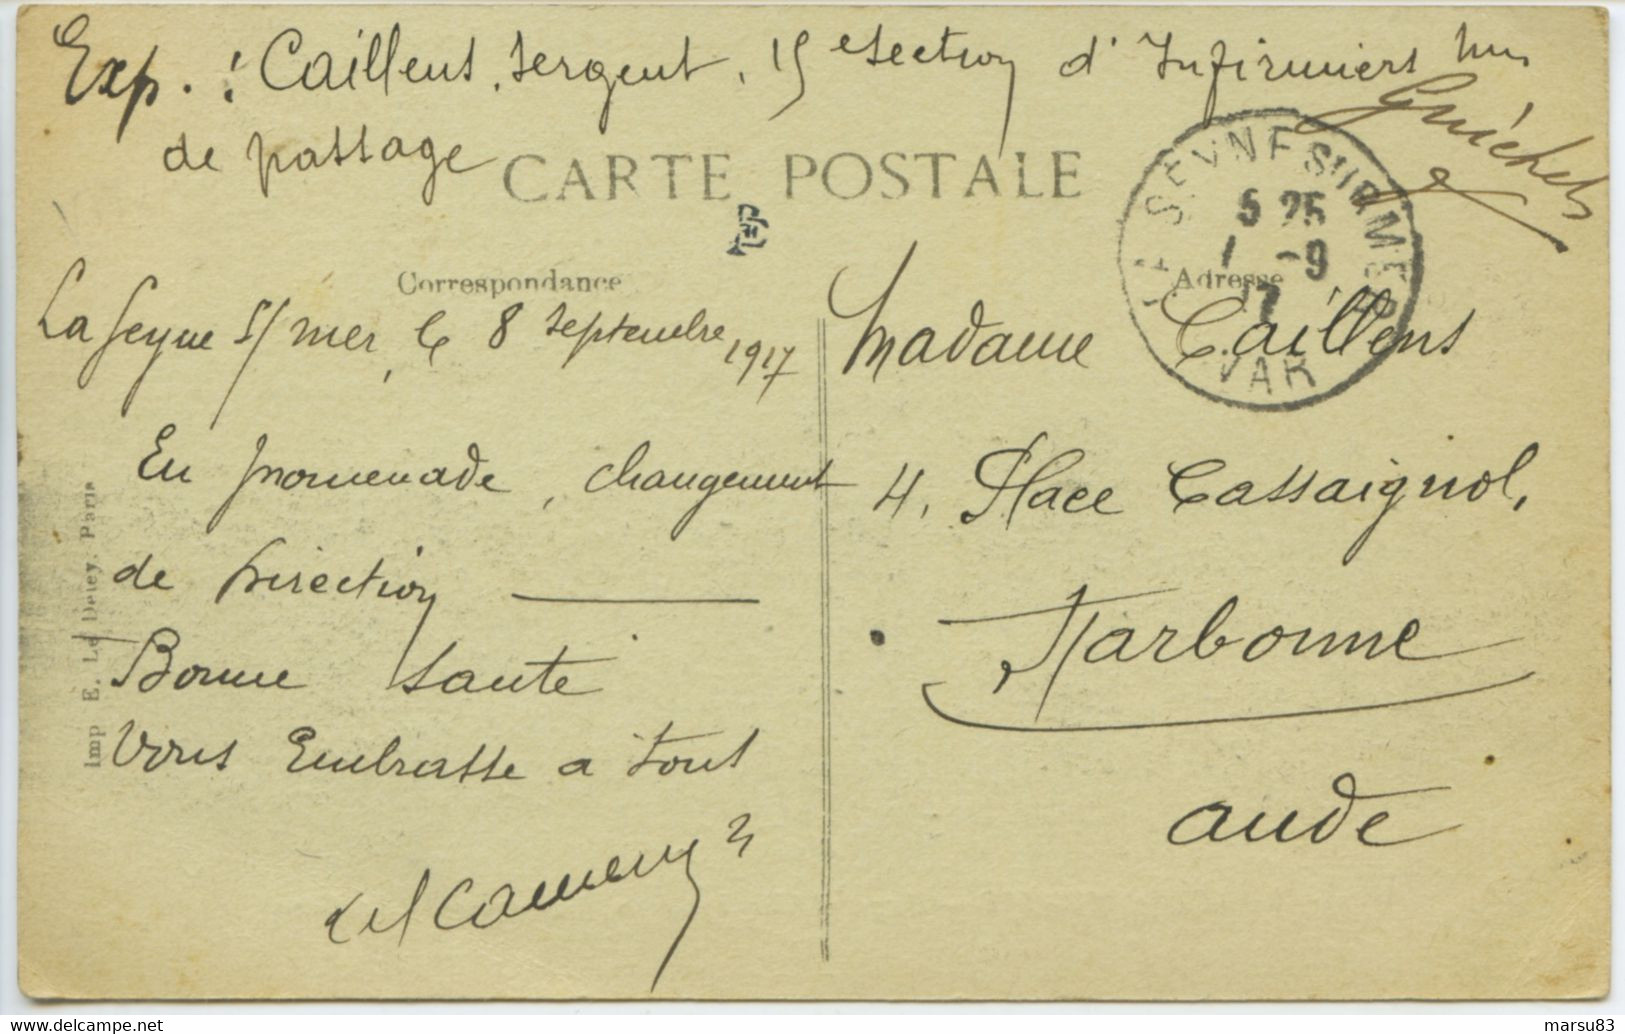 Exp. : Caillens, sergent, 15e section d'Infirmiers
de passage
CARTE POSTALE
Correspondance
Adresse
LA SEYNE SUR MER
5 25
-9
17
VAR
La Seyne s/ mer, le 8 septembre 1917
En promenade, changement
de direction
Bonne santé
Vous Embrasse a tous
Madame Caillens
4, Place Cassaignol,
Narbonne
Aude
Imp E. Le Deley, Paris
marsu83